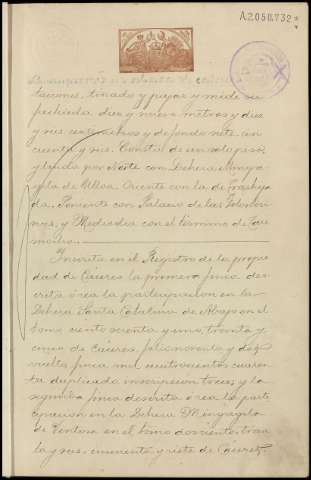 A.2.058.732
taciones, tinado y pajar y mide su
fachada diez y nueve metros y diez
y seis centímetros y de fondo siete cin
cuenta y seis. Consta de un solo piso
y linda por Norte con Dehesa Mingaja
gila de Ulloa. Oriente con la de
Poniente con Palacio de las
y Mediodía con el término de
Inscrita en el Registro de la propie
dad de Cáceres la primera finca des
crita ó sea la participación en la
Dehesa Santa Catalina de Abajo en el
tomo ciento ochenta y uno, treinta y
cinco de Cáceres, folio noventa y dos
vuelto, finca mil cuatrocientos cuaren
ta duplicado inscripción trece; y la
segunda finca descrita ó sea la parti
cipación en la Dehesa
de en el tomo doscientos trein
ta y seis, cincuenta y siete de Cáceres,